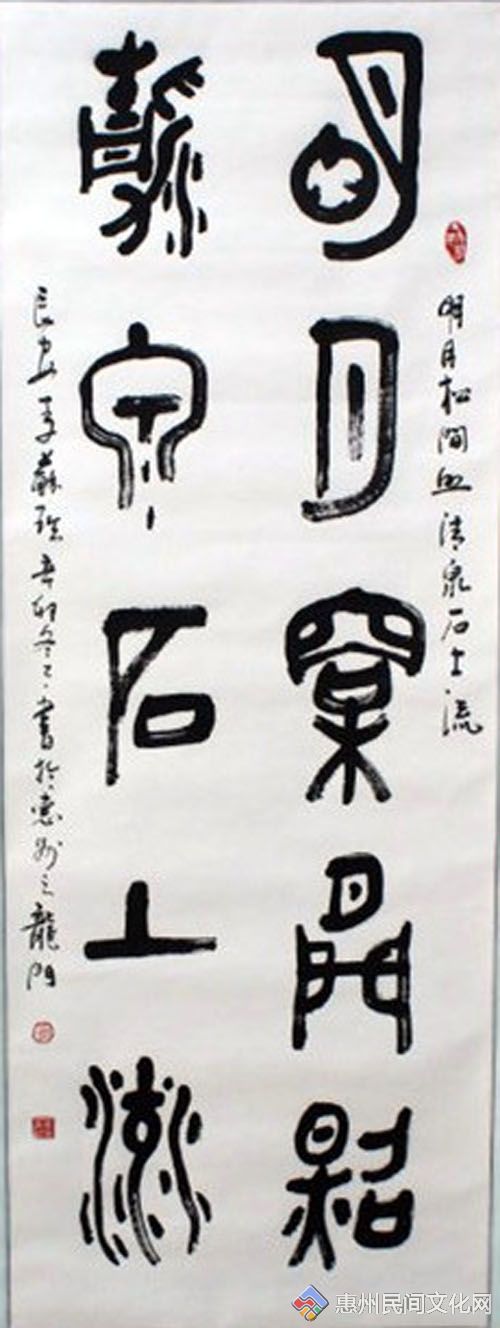 明月松间照清泉石上流
明月窠間照
清泉石上流
辛卯冬月書於惠州之龍門
惠州民间文化网